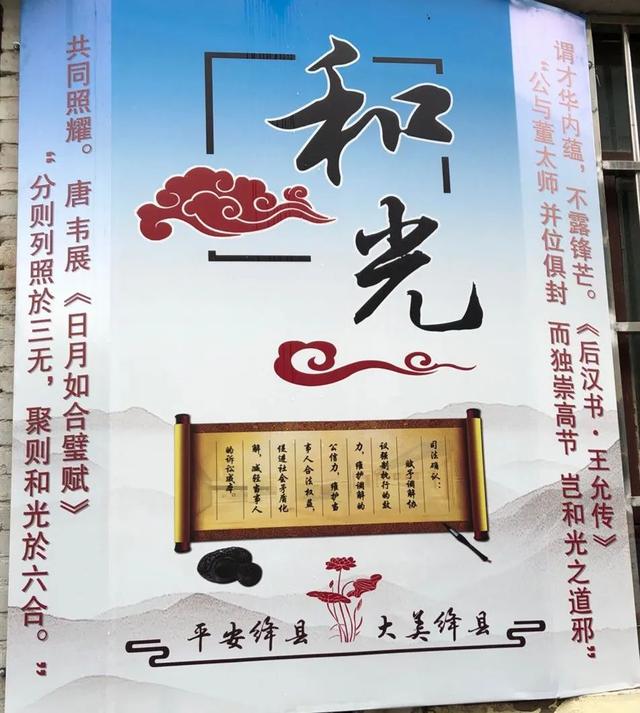 和光
谓才华内蕴，不露锋芒。《后汉书·王允传》
“公与董太师 并位俱封 而独崇高节 岂和光之道邪”
共同照耀。 唐 韦展 《日月如合璧赋》
“分则列照於三无，聚则和光於六合。”
司法确认：
赋予调解协
议强制执行的效
力，维护调解的
公信力，维护当
事人合法权益，
促进社会矛盾化
解，减轻当事人
的诉讼成本。
平安绛县 大美绛县